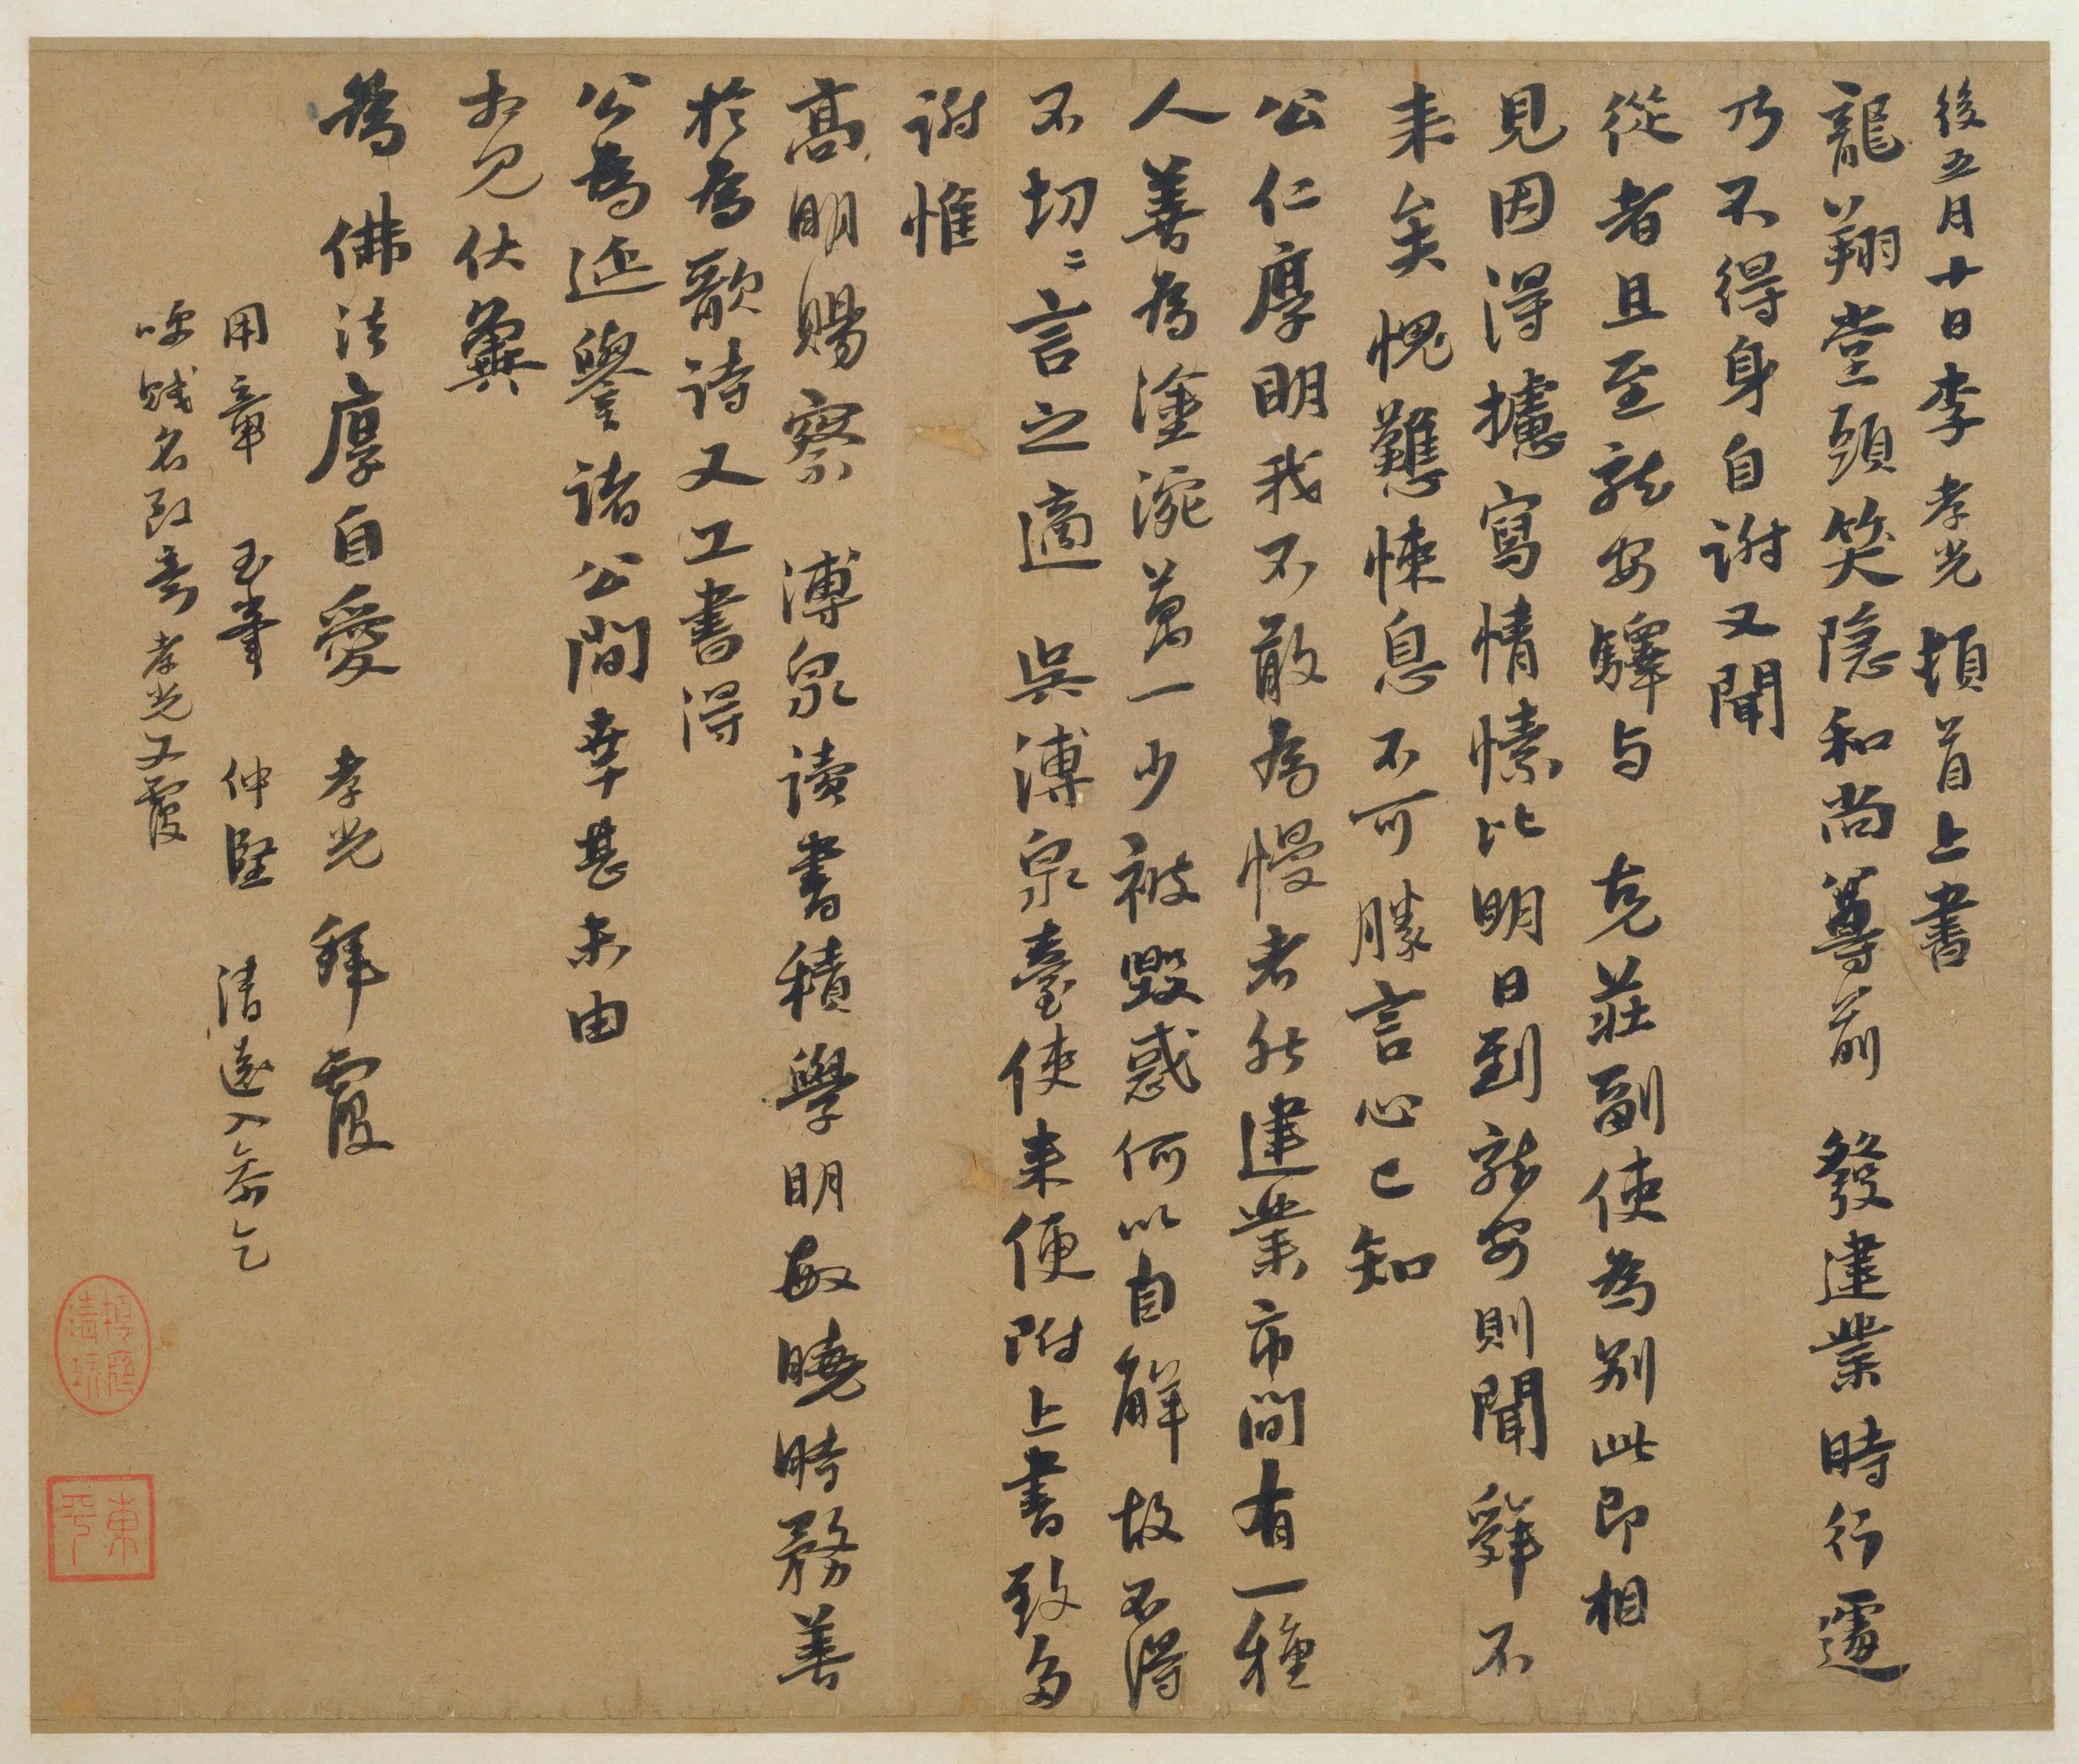 後五月十日李孝光頓首上書
龍翔堂頭笑隱和尚尊前 發建業時行遽
乃不得身自谢又聞
從者且至龍安驛与 克莊副使為别此即相
見因得攄寫情愫比明日到龍安則聞舜不
来矣愧難悚息不可勝言心已知
公仁厚明我不敢為慢者然建業市間有一種
人善為塗涴萬一少被毀惑何以自解故不得
不切々言之適 吳溥泉臺使来便附上書致多
谢惟
高明賜察 溥泉讀書積學明敏曉時務善
於為歌詩又工書得
公為延譽諸公間幸甚未由
相見伏冀
為 佛法厚自愛 孝光拜覆
用章 玉峯 仲堅 清遠
賤名致意孝光又覆
東平